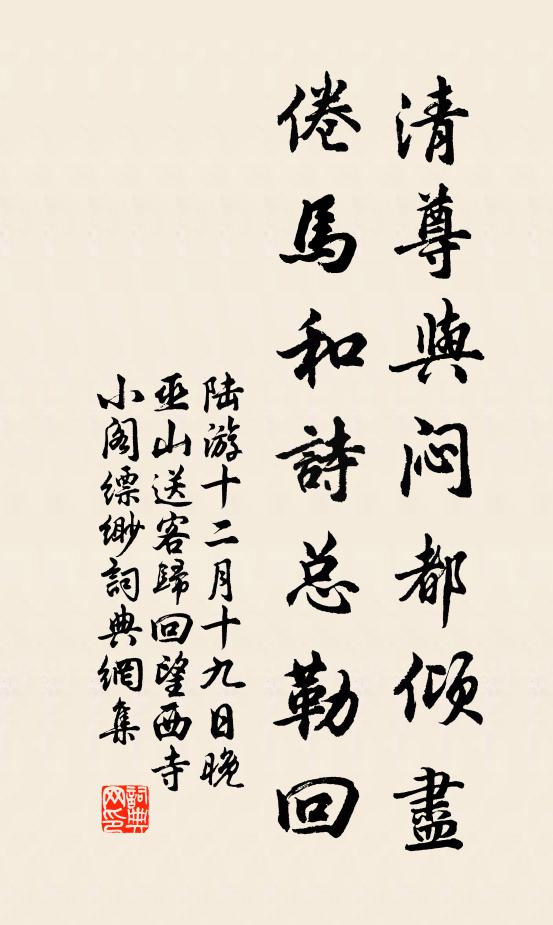 清尊與闷都倾盡
倦馬和詩总勒回
陆游十二月十九日晚
巫山送客歸回望西寺
小阁缥缈詞典網集
詞典网印